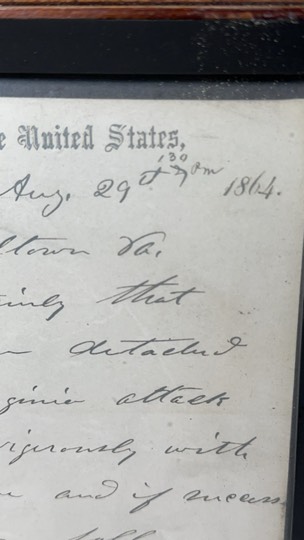 e United States,
Aug. 29th 1 30 Pm 1864.
ltown Va.
inly that
detached
ginia attack
vigorously with
and if necess